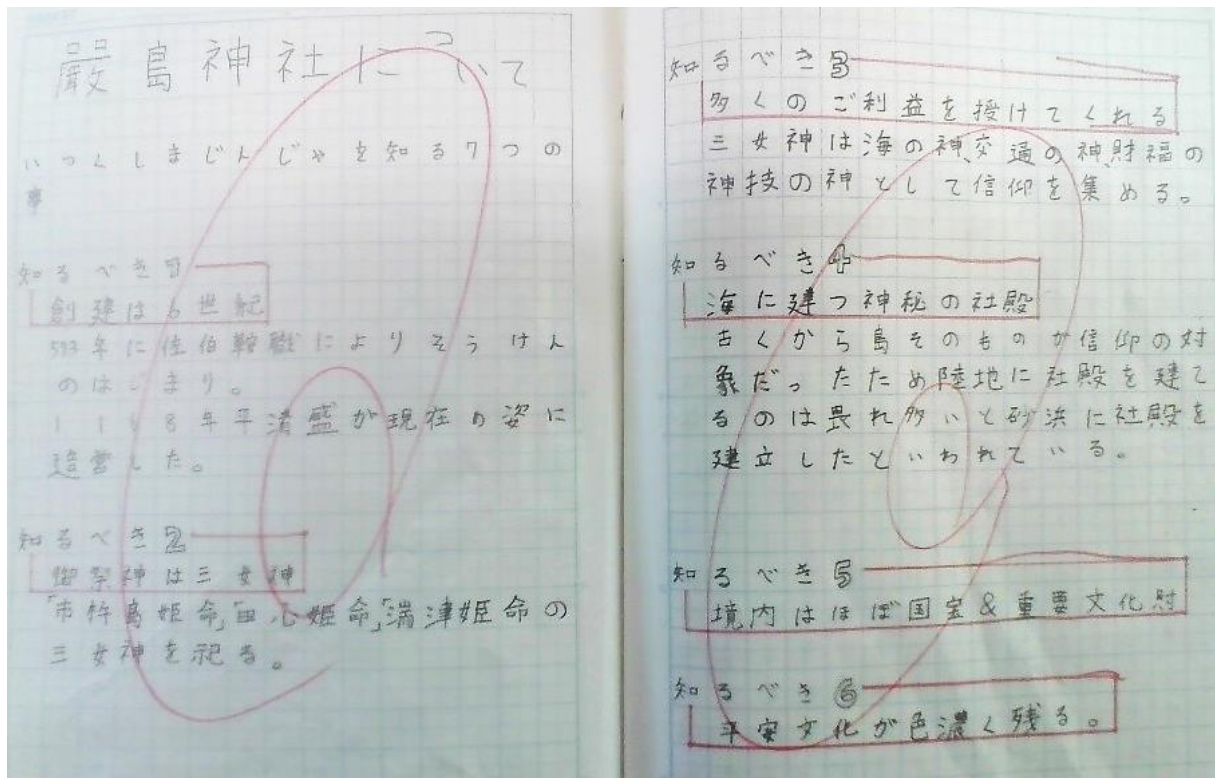 厳島神社について
いつくしまじんじゃを知る7つの
事
知るべき1
創建は6世紀
593年に佐伯鞍職によりそうけん
のはじまり。
1168年平清盛が現在の姿に
造営した。
知るべき2
御祭神は三女神
「市杵島姫命」「田心姫命」「湍津姫命の
三女神を祀る。
知るべき3
多くのご利益を授けてくれる
三女神は海の神、交通の神、財福の
神技の神として信仰を集める。
知るべき4
海に建つ神秘の社殿
古くから島そのものが信仰の対
象だったため陸地に社殿を建て
るのは畏れ多いと砂浜に社殿を
建立したといわれている。
知るべき5
境内はほぼ国宝&重要文化財
知るべき6
平安文化が色濃く残る。